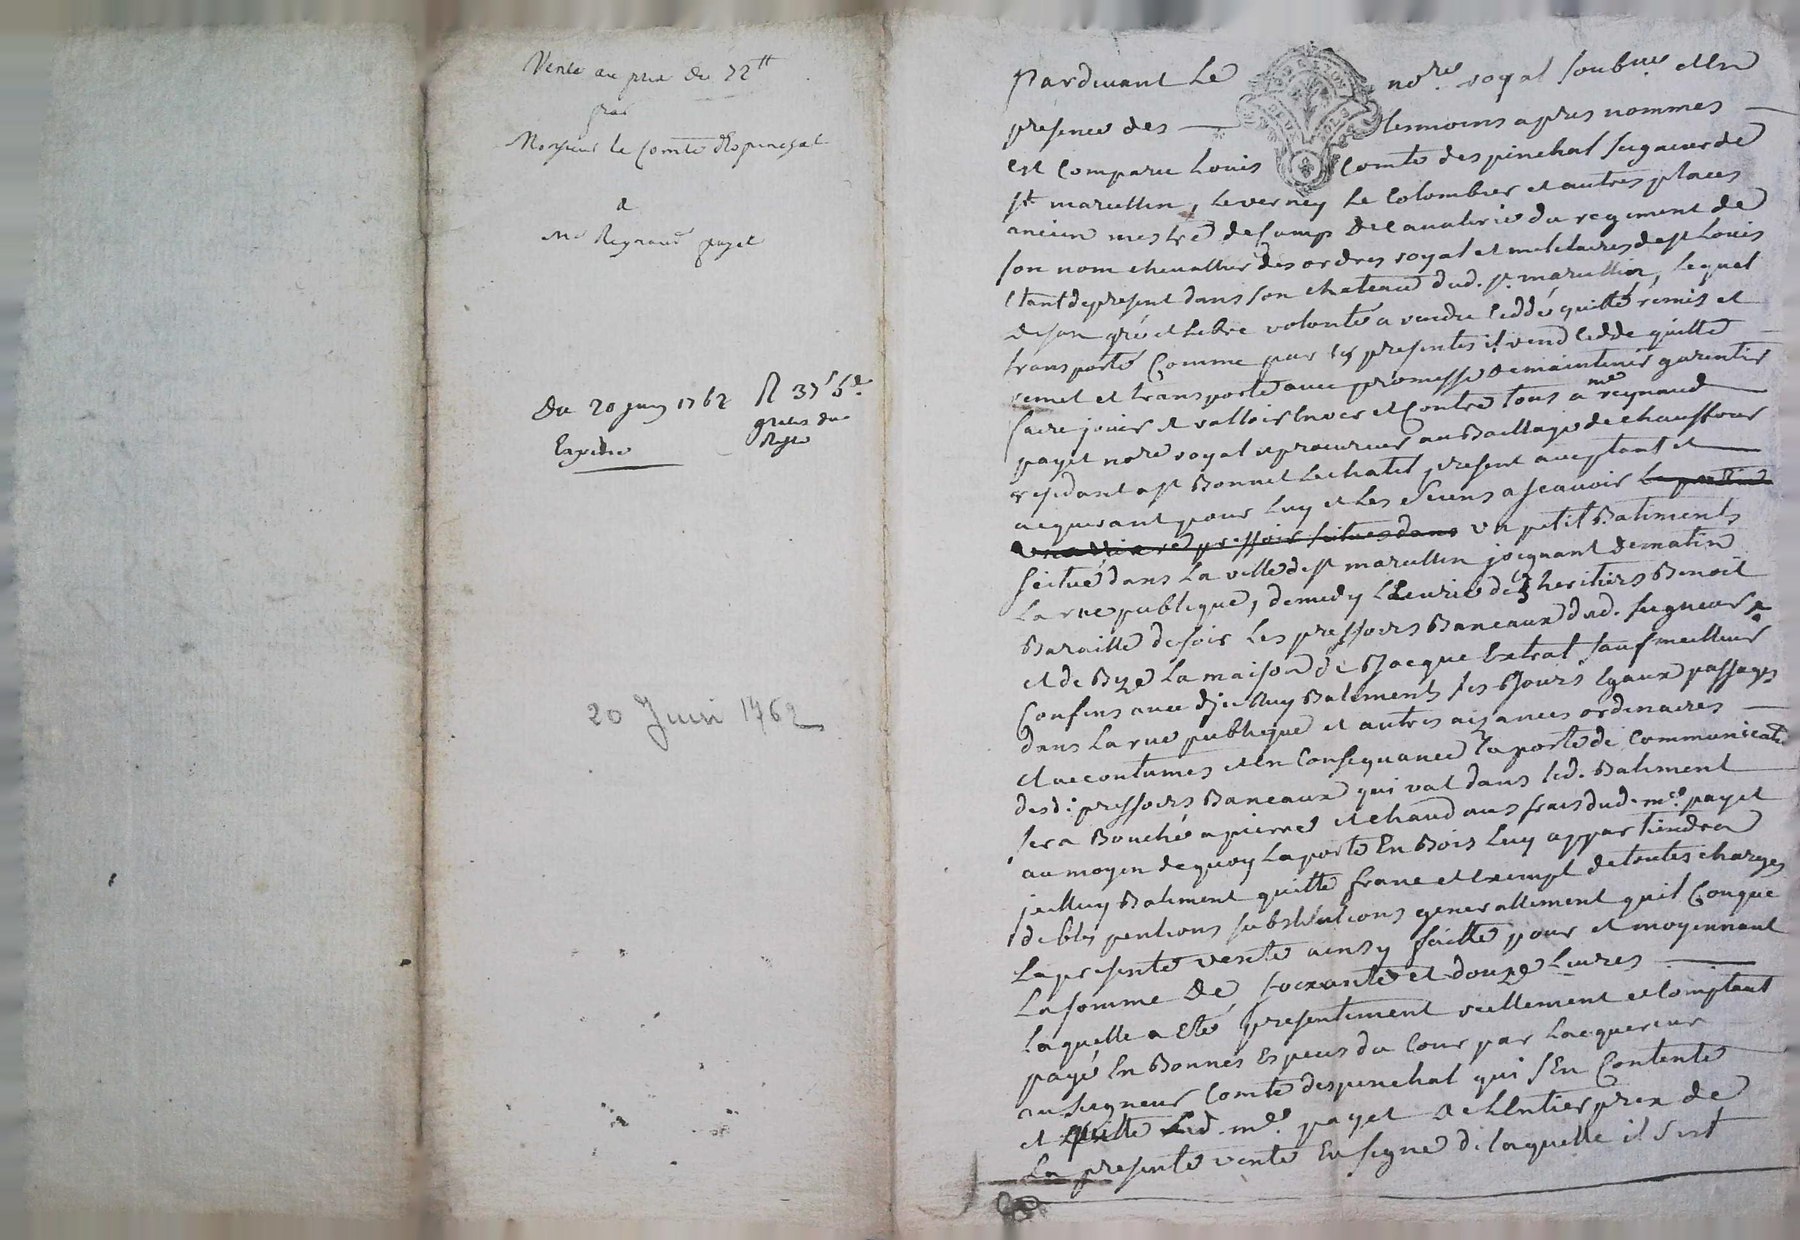 Vente au prix de 72ᵗᵗ
par
Monsieur le Comte d'Espinchal
a
Mᵉ Reynaud payet
Du 20 juin 1762
R 37ˢ 6ᵈ
gratis du
Regre
Expedie
20 Juin 1762
Pardevant Le noʳᵉ royal soubⁿᵉ et En
presence des temoins apres nommes
est Comparu Louis Comte despinchal seigneur de
sᵗ marcellin, Leverney Le Colombier et autres places
ancien mestre de Camp de Cavalerie du regiment de
son nom chevallier des ordres royal et militaires de sᵗ Louis
Etant de present dans son chateau dud. sᵗ. marcellin, lequel
de son gré et Libre volonté a vendu Ceddé quitté remis et
transporté Comme par les presentes il vend Cedde quitte
remet et transporte avec promesse de maintenir garentir
faire jouir et valloir Envers et Contre tous a mᵉ reynaud
payet noʳᵉ royal et procureur au Bailliage de chauffour
residant a sᵗ Bonnet Lechatel present acceptant et
acquerant pour Luy et Les Siens a scavoir
un petit Batiments
scitué dans La ville de sᵗ marcellin joignant de matin
La rue publique, de midy L'Ecurie des heritiers Benoit
Baraille de soir Les pressoirs Baneaux dud. seigneur
et de Bize La maison de Jacque Extrat sauf meilleurs
Confins avec Icelluy Batiments ses Jours Egaux passages
dans La rue publique et autres aizances ordinaires
et accoutumes et En Consequance la porte de Communicatᵒⁿ
desd: pressoirs Baneaux qui vat dans led. Batiment
sera Bouché a pierre et chaud aus frais dud. mᵉ. payet
au moyen de quoy La porte En Bois Luy appartiendra
jcelluy Batiment quitte franc et Exempt de toutes charges
debtes pentions substitutions generallement quil Conque
La presente vente ainsy faitte pour et moyennant
La somme de soixante et douze Livres
Laquelle a Eté presentement reellement et Comptant
payé En Bonnes Especes du Cour par Lacquereur
au seigneur Comte despinchal qui s'En Contente
et quitte Led. mᵉ. payet de L'Entier prix de
La presente vente En signe de laquelle il s'est